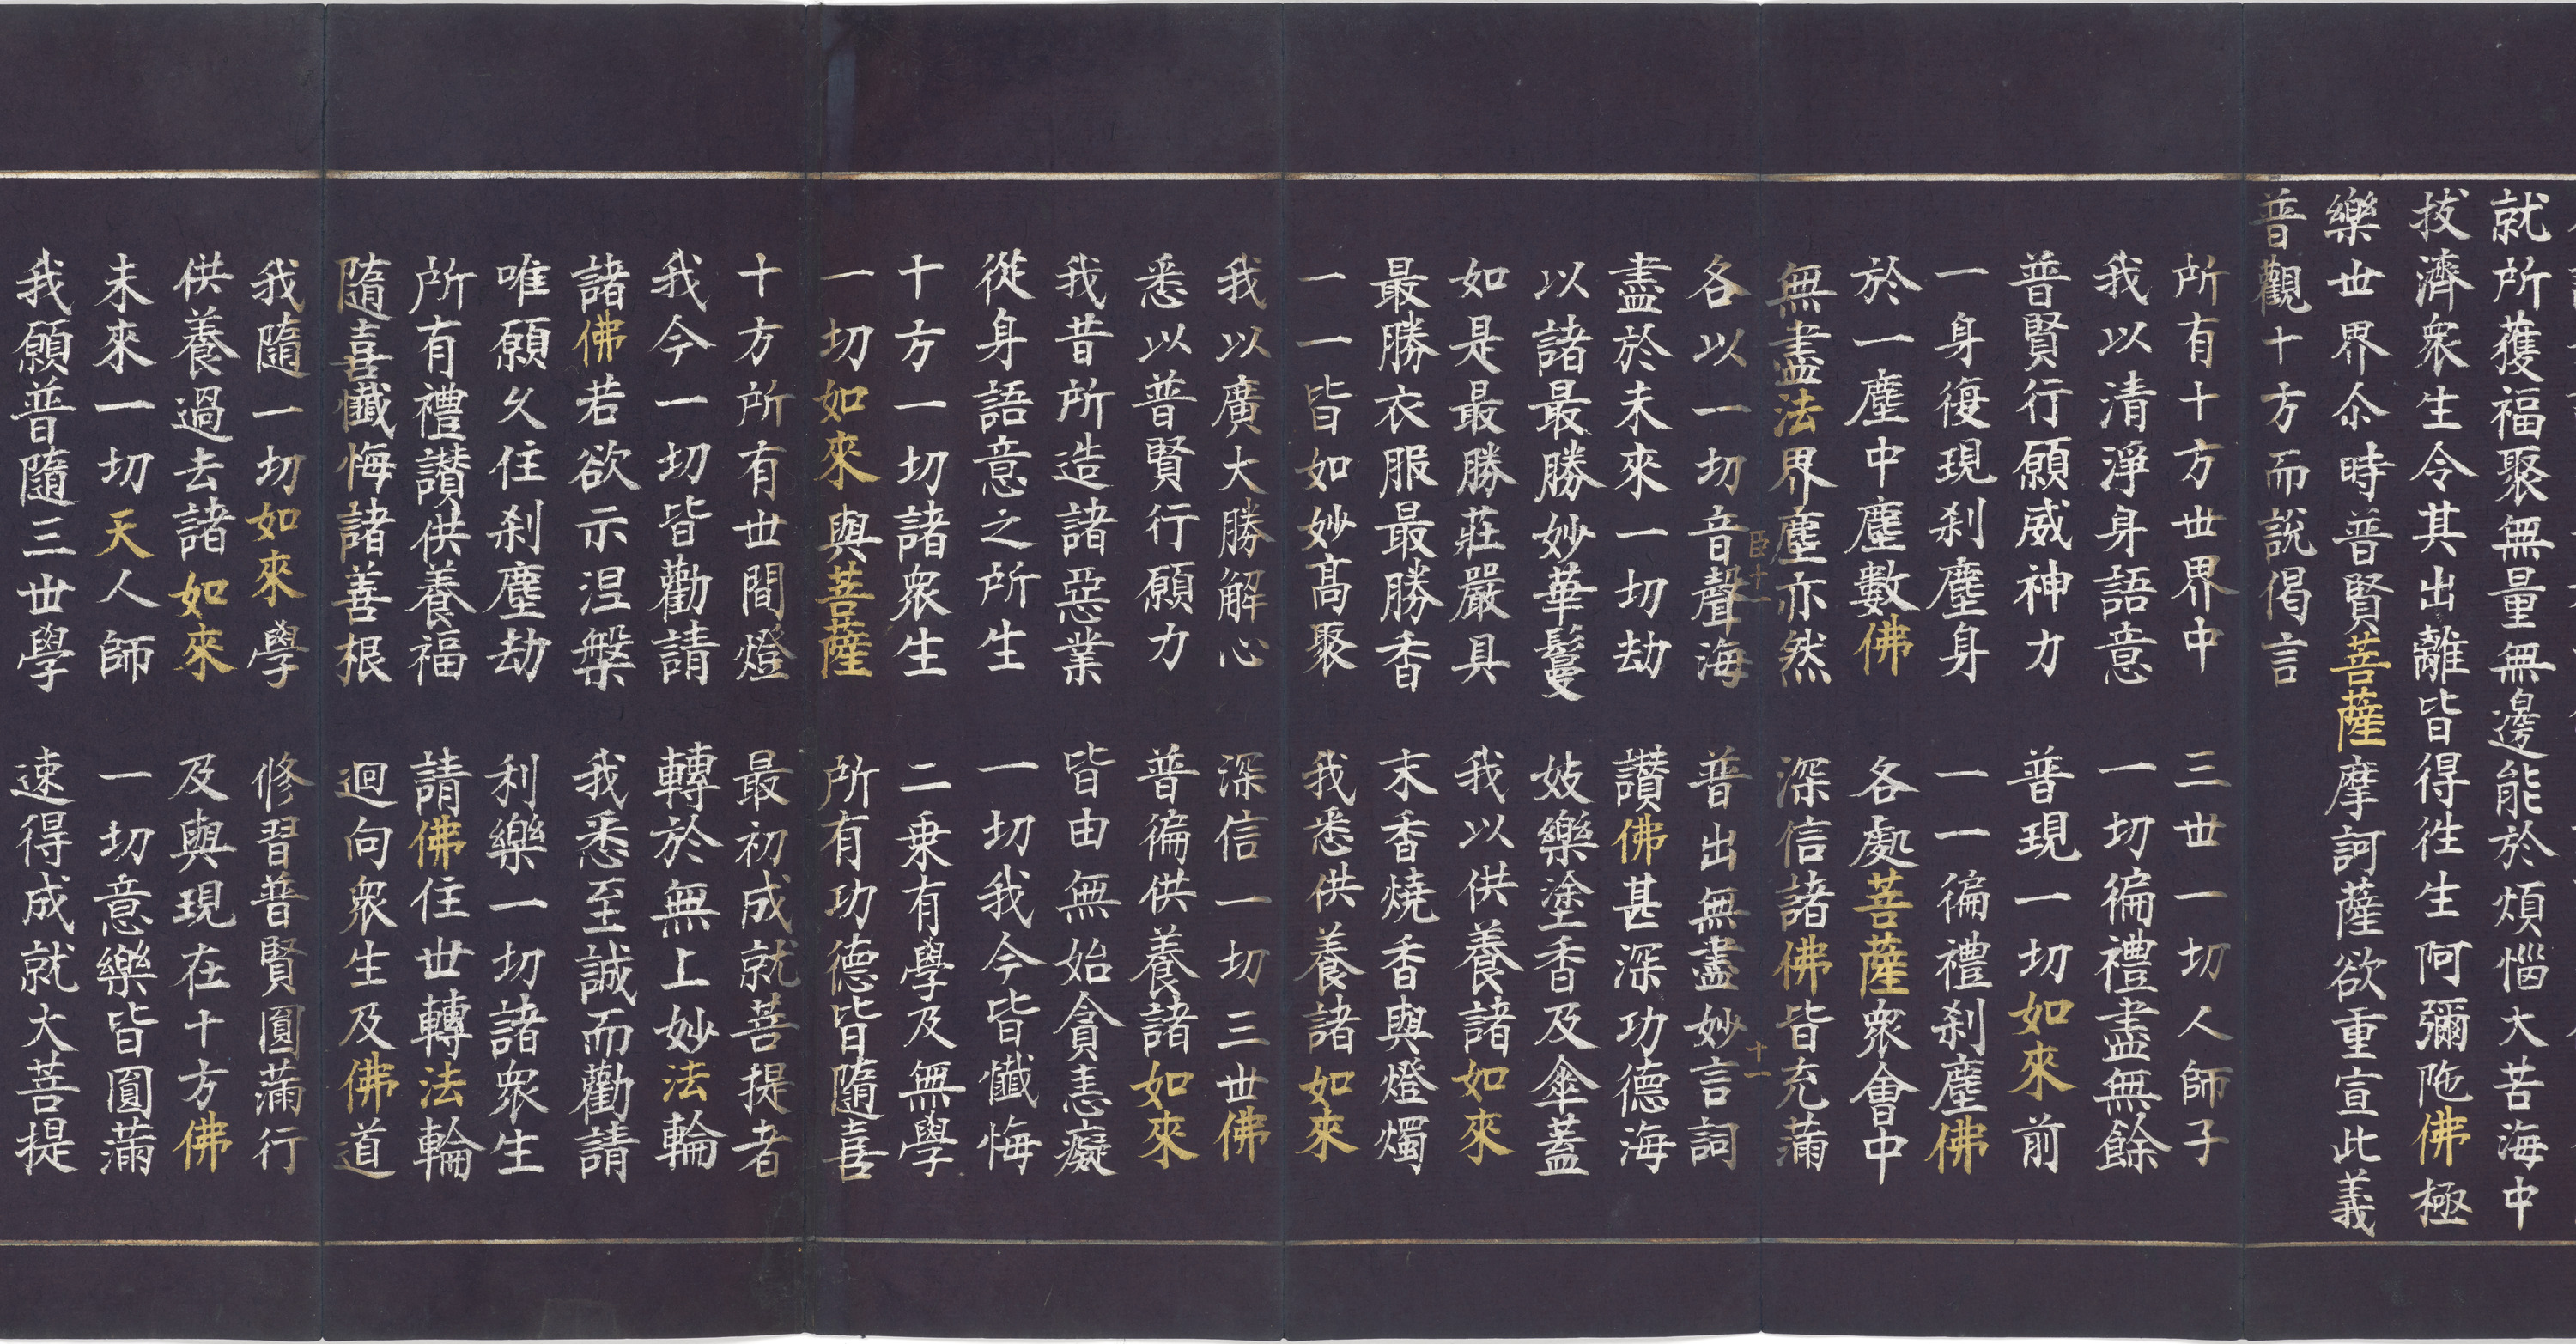 就所獲福聚無量無邊能於煩惱大苦海中
拔濟衆生令其出離皆得徃生阿彌陁佛極
樂世界尒時普賢菩薩摩訶薩欲重宣此義
普觀十方而說偈言
所有十方世界中 三世一切人師子
我以清淨身語意 一切徧禮盡無餘
普賢行願威神力 普現一切如來前
一身復現刹塵身 一一徧禮刹塵佛
於一塵中塵數佛 各處菩薩衆會中
無盡法界塵亦然 深信諸佛皆充滿
臣十一 十一
各以一切音聲海 普出無盡妙言詞
盡於未來一切劫 讚佛甚深功德海
以諸最勝妙華鬘 妓樂塗香及傘蓋
如是最勝莊嚴具 我以供養諸如來
最勝衣服最勝香 末香燒香與燈燭
一一皆如妙髙聚 我悉供養諸如來
我以廣大勝解心 深信一切三世佛
悉以普賢行願力 普徧供養諸如來
我昔所造諸惡業 皆由無始貪恚癡
從身語意之所生 一切我今皆懺悔
十方一切諸衆生 二乗有學及無學
一切如來與菩薩 所有功德皆隨喜
十方所有世間燈 最初成就菩提者
我今一切皆勸請 轉於無上妙法輪
諸佛若欲示涅槃 我悉至誠而勸請
唯願久住刹塵劫 利樂一切諸衆生
所有禮讚供養福 請佛住世轉法輪
隨喜懺悔諸善根 迴向衆生及佛道
我隨一切如來學 修習普賢圓滿行
供養過去諸如來 及與現在十方佛
未來一切天人師 一切意樂皆圓滿
我願普隨三世學 速得成就大菩提